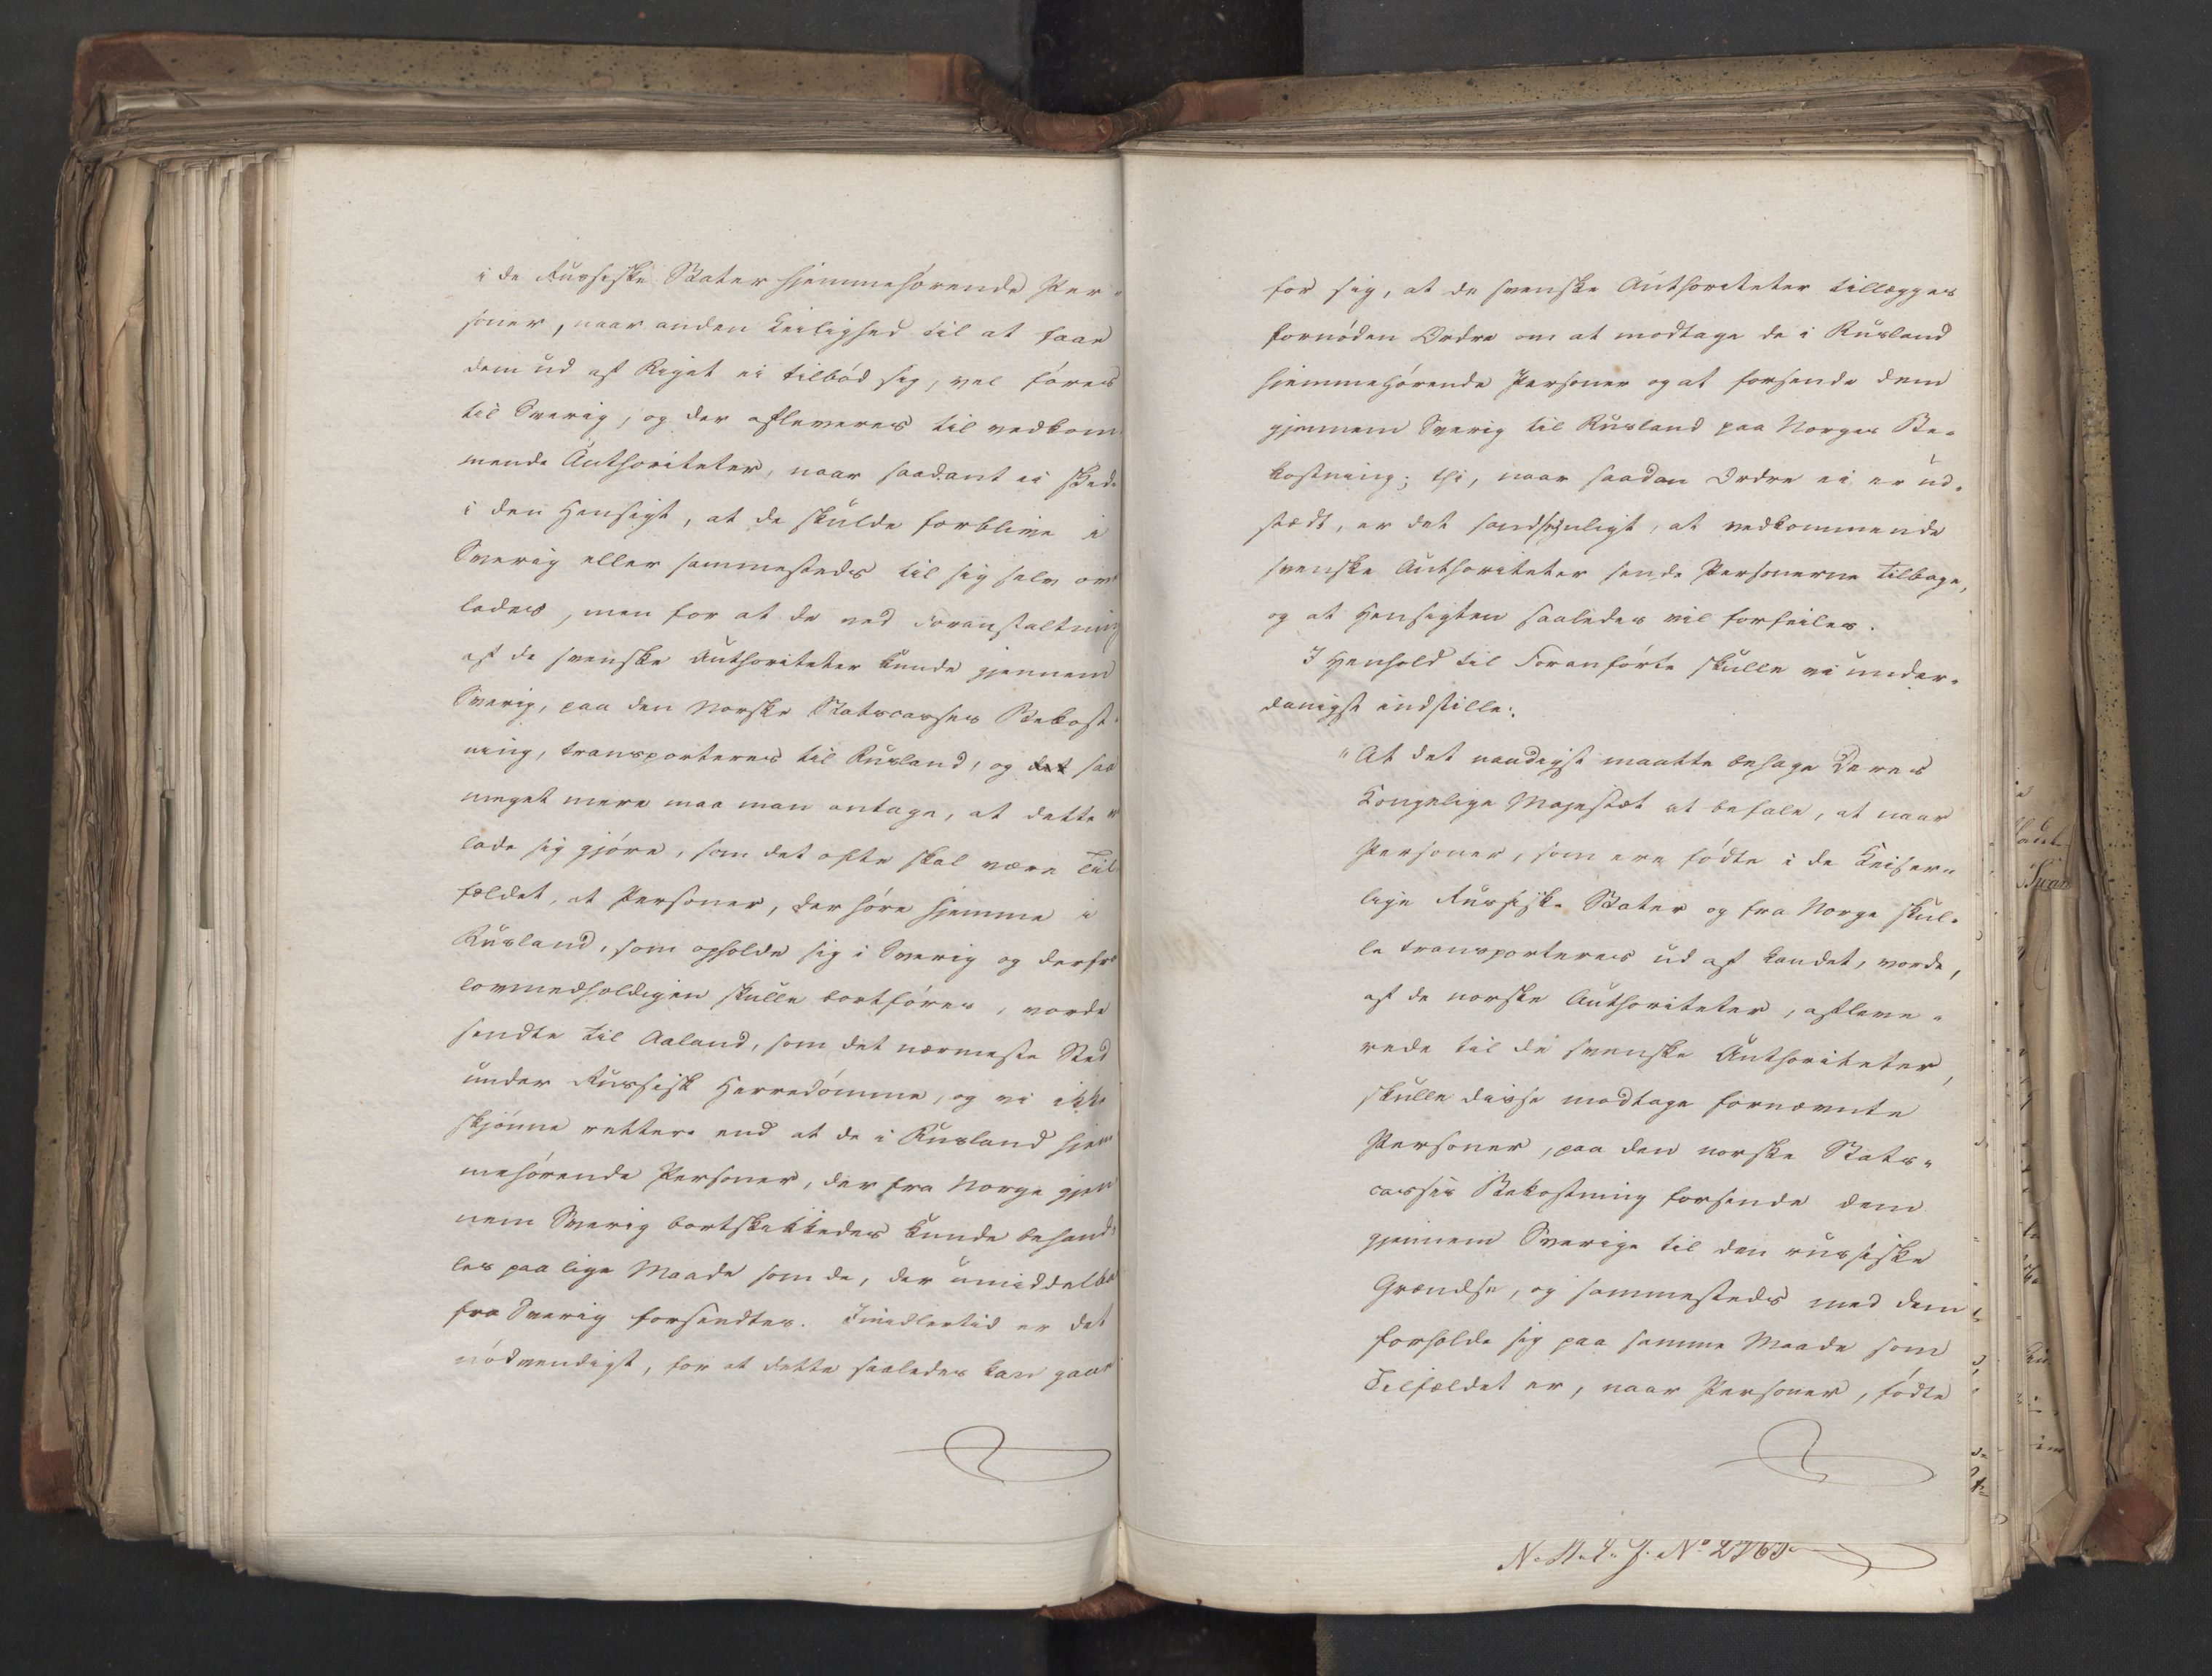 i de Russiske Stater hjemmehørende Per-
soner, naar anden Leilighed til at faae
dem ud af Riget ei tilbød sig, vel føres
til Sverig, og der afleveres til vedkom-
mende Authoriteter, naar saadant ei skede
i den Hensigt, at de skulde forblive i
Sverig eller sammesteds til sig selv over
lades, men for at de ved Foranstaltning
af de svenske Authoriteter kunde gjennem
Sverig, paa den Norske Statscasses Bekost-
ning, transporteres til Rusland, og det saa
meget mere maa man antage, at dette
lade sig gjøre, som det ofte skal være Til-
fældet, at Personer, der høre hjemme i
Rusland, som opholde sig i Sverig og derfra
lovmedholdigen skulle bortføres, vorde
sendte til Aaland, som det nærmeste Sted
under Russisk Herredømme, og vi ikke
skjønne rettere end at de i Rusland hjem
mehørende Personer, der fra Norge gjen
nem Sverig bortskikkedes kunde behand-
les paa lige Maade som de, der umiddelba
fra Sverig forsendtes. Imidlertid er det
nødvendigt, for at dette saaledes kan gaae
for sig, at de svenske Authoriteter tillægges
fornøden Ordre om at modtage de i Rusland
hjemmehørende Personer og at forsende dem
gjennem Sverig til Rusland paa Norges Be-
kostning; thi, naar saadan Ordre ei er ud-
stædt, er det sandsynligt, at vedkommende
svenske Authoriteter sende Personerne tilbage,
og at Hensigten saaledes vil forfeiles.
I Henhold til Foranførte skulle vi under-
danigst indstille:
"At det naadigst maatte behage Deres
Kongelige Majestæt at befale, at naar
Personer, som ere fødte i de Keiser-
lige Russiske Stater og fra Norge skul-
le transporteres ud af Landet, vorde,
af de norske Authoriteter, afleve-
rede til de svenske Authoriteter,
skulle disse modtage fornævnte
Personer, paa den norske Stats-
casses Bekostning forsende dem
gjennem Sverige til den russiske
Grændse, og sammesteds med dem
forholde sig paa samme Maade som
Tilfældet er, naar Personer, fødte